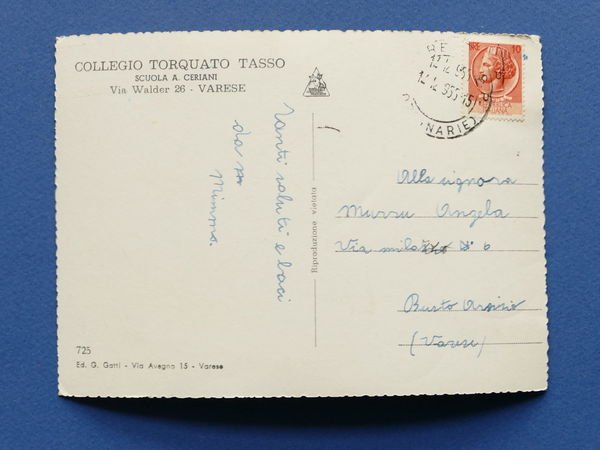 COLLEGIO TORQUATO TASSO
SCUOLA A. CERIANI
Via Walder 26 - VARESE
Tanti saluti e baci
da
Mimmo.
Riproduzione vietata
LIRE 10
Alla signora
Murru Angela
Via milano N° 6
Busto Arsizio
(Varese)
725
Ed. G. Gatti - Via Avegno 15 - Varese